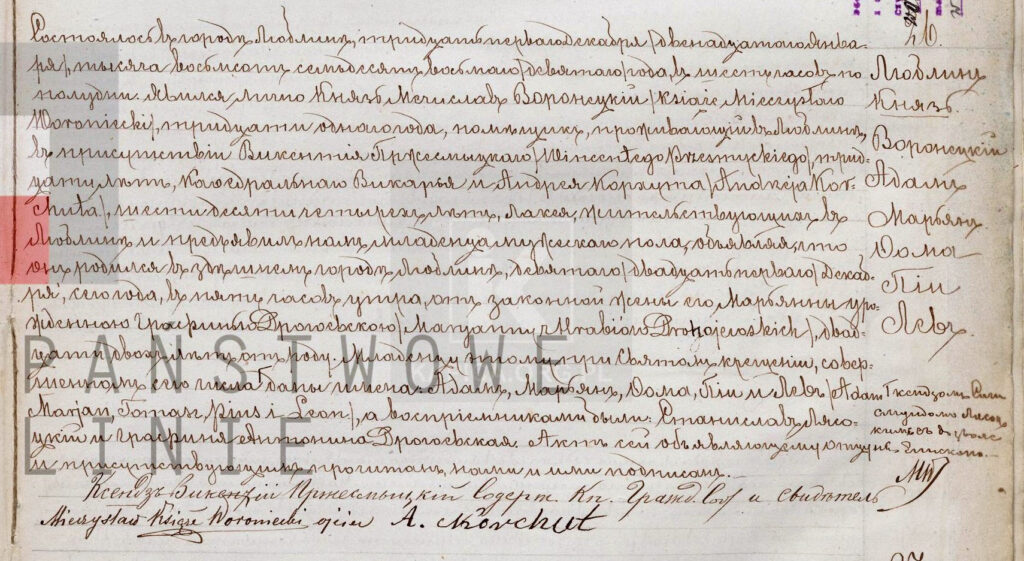 26.
Состоялось въ городѣ Люблинѣ, тридцать перваго Декабря /двѣнадцатаго Янва-
ря/, тысяча восемьсотъ семьдесятъ восьмаго /девятаго/ года, въ шесть часовъ по
полудни. Явился лично Князь Мечиславъ Воронецкій /książe Mieczysław
Woroniecki/, тридцати одного года, помѣщикъ, проживающій въ Люблинѣ,
въ присутствіи Викентія Пржесмыцкаго /Wincentego Przesmyckiego/, трид-
цати лѣтъ, Каѳедральнаго Викарья и Андрея Корхута /Andrzeja Kor-
chuta/, шестидесяти четырехъ лѣтъ, лакея, жительствующихъ въ
Люблинѣ и предъявилъ намъ младенца мужескаго пола, объявляя, что
онъ родился въ здѣшнемъ городѣ Люблинѣ, девятаго /двадцать перваго/ Декаб-
ря, сего года, въ пять часовъ утра, отъ законной жены его Марьянны уро-
жденною Графинью Дрогоевскою /Maryanny z Hrabiów Drohojewskich/, двад-
цати двухъ лѣтъ отъ роду. Младенцу этому при Святомъ крещеніи, совер-
шенномъ сего числа даны имена Адамъ, Марьянъ, Ѳома, Піи и Левъ /Adam
Marjan, Tomasz, Pius i Leon/, а воспріемниками были: Станиславъ Лясо-
цкій и Графиня Антонина Дрогоевская. Актъ сей объявляющему отцу
и присутствующимъ прочитанъ, нами и ими подписанъ.
Ксендзъ Викентій Пржесмыцкій Содерж. Кн. Гражд. Сост и свидѣтель
Mieczysław Książę Woroniecki ojciec A. Korchut
Люблинъ
Князь
Воронецкій
Адамъ
Марьянъ
Ѳома
Піи
Левъ.
PAŃSTWOWE
LINIE